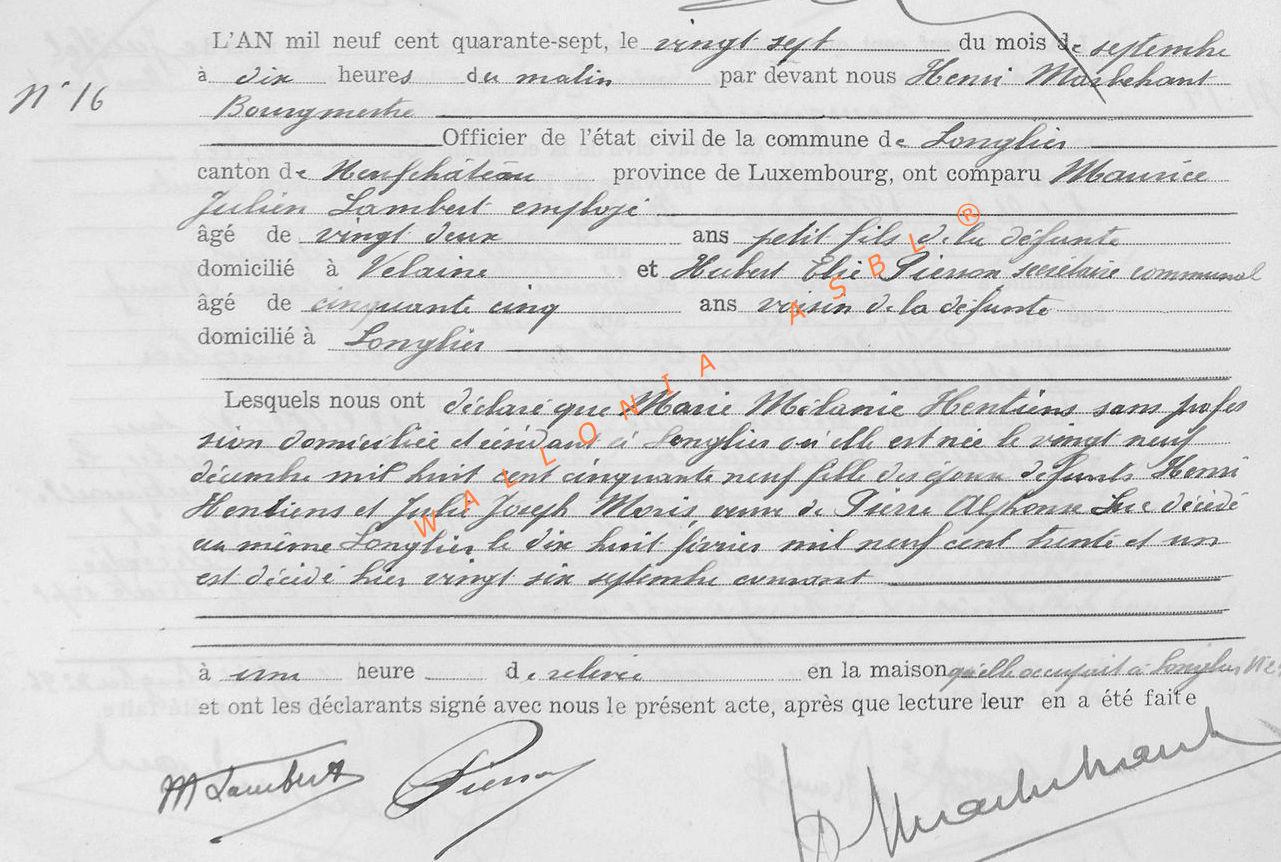 L'AN mil neuf cent quarante-sept, le vingt sept du mois de septembre
N° 16
à dix heures du matin par devant nous Henri Marbehant
Bourgmestre
Officier de l'état civil de la commune de Longlier
canton de Neufchâteau province de Luxembourg, ont comparu Maurice
Julien Lambert employé
âgé de vingt deux ans petit fils de la défunte
domicilié à Velaine et Hubert Elie Pierson secrétaire communal
âgé de cinquante cinq ans voisin de la défunte
domicilié à Longlier
Lesquels nous ont déclaré que Marie Mélanie Hentiens sans profes
sion domiciliée et résidant à Longlier ou elle est née le vingt neuf
décembre mil huit cent cinquante neuf fille des époux défunts Henri
Hentiens et Julie Joseph Moris, veuve de Pierre Alphonse décédé
au même Longlier le dix huit février mil neuf cent trente et un
est décédé hier vingt six septembre courant
à une heure de relevée en la maison qu'elle occupait à Longlier
et ont les déclarants signé avec nous le présent acte, après que lecture leur en a été faite
M Lambert Pierson Marbehant
WALLONIA ASBL ®